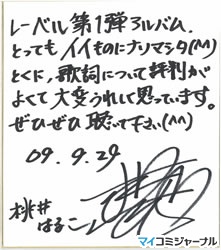 レーベル第1弾アルバム、
とってもイイものにナリマシタ(M)
とくに、歌詞について評判が
よくて大変うれしく思っています。
ぜひぜひ聴いて下さい(^^)
09.9.29
桃井
はるこ
マイコミジャーナル